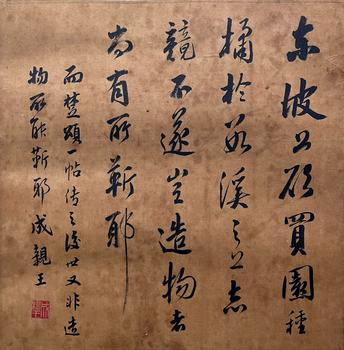 东坡公欲買園種
橘於荆溪之上志
竟不遂豈造物者
尚有所靳耶
而楚頌一帖傳之後世又非造
物所能靳耶成親王